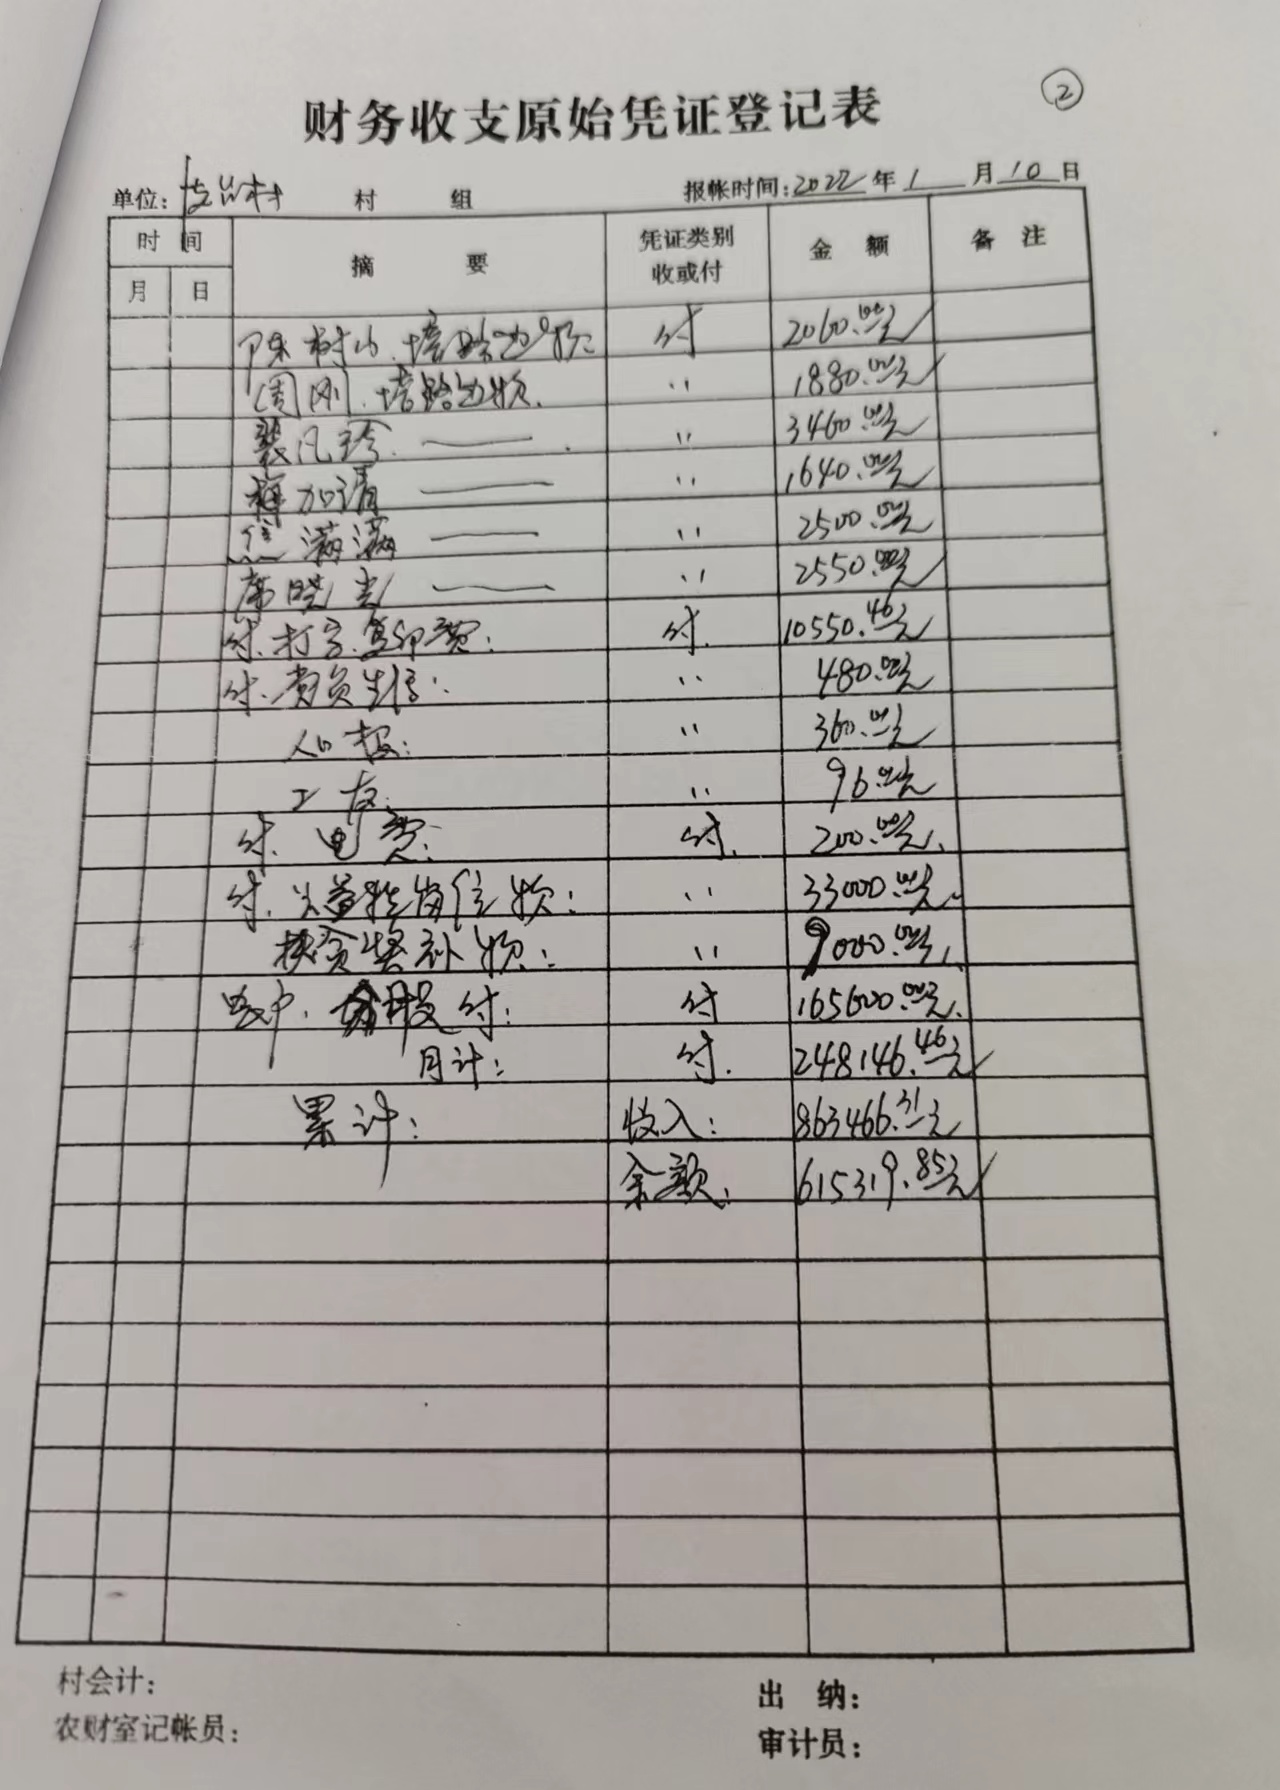 ②
财务收支原始凭证登记表
单位: 村 组 报帐时间:2022年1月10日
时 间 摘 要 凭证类别 收或付 金 额 备 注
月 日
陈树山.培路边款: 付 2060.00元
周刚.培路边款. " 1880.00元
裴凡玲. —— " 3460.00元
加清 —— " 1640.00元
焦满满 —— " 2500.00元
席晓光 —— " 2550.00元
付.打字.复印费: 付. 10550.46元
付.党员生活: " 480.00元
人口报: " 360.00元
工友. " 96.00元
付.电费: 付. 200.00元.
付.公益性岗位款: " 33000.00元.
扶贫奖补款: " 9000.00元.
付: 付 165600.00元.
月计: 付. 248146.46元
累计: 收入: 863466.31元
余额: 615319.85元
村会计: 出 纳:
农财室记帐员: 审计员: